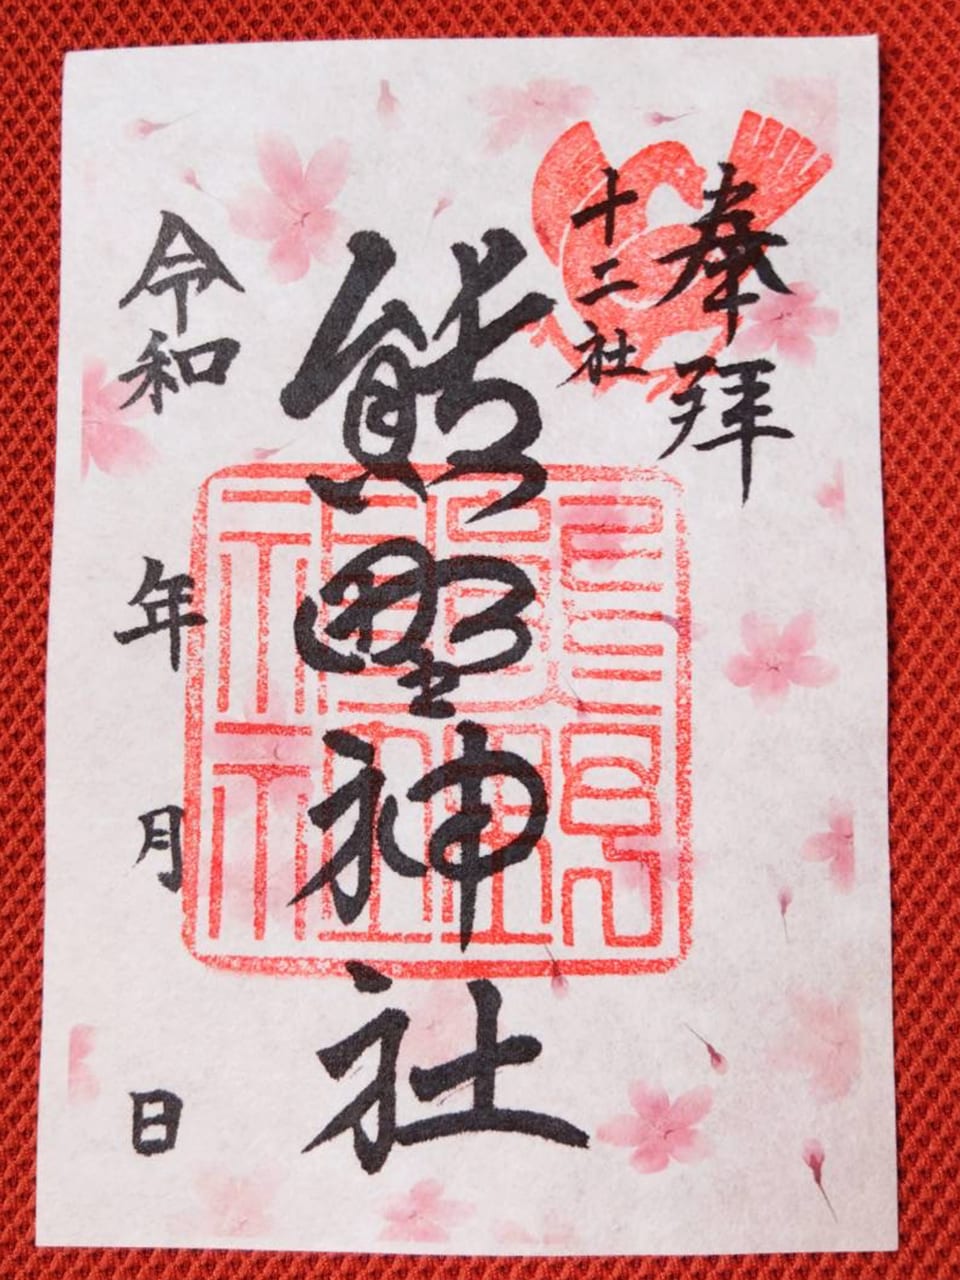 奉拝
十二社
熊野神社
令和 年 月 日